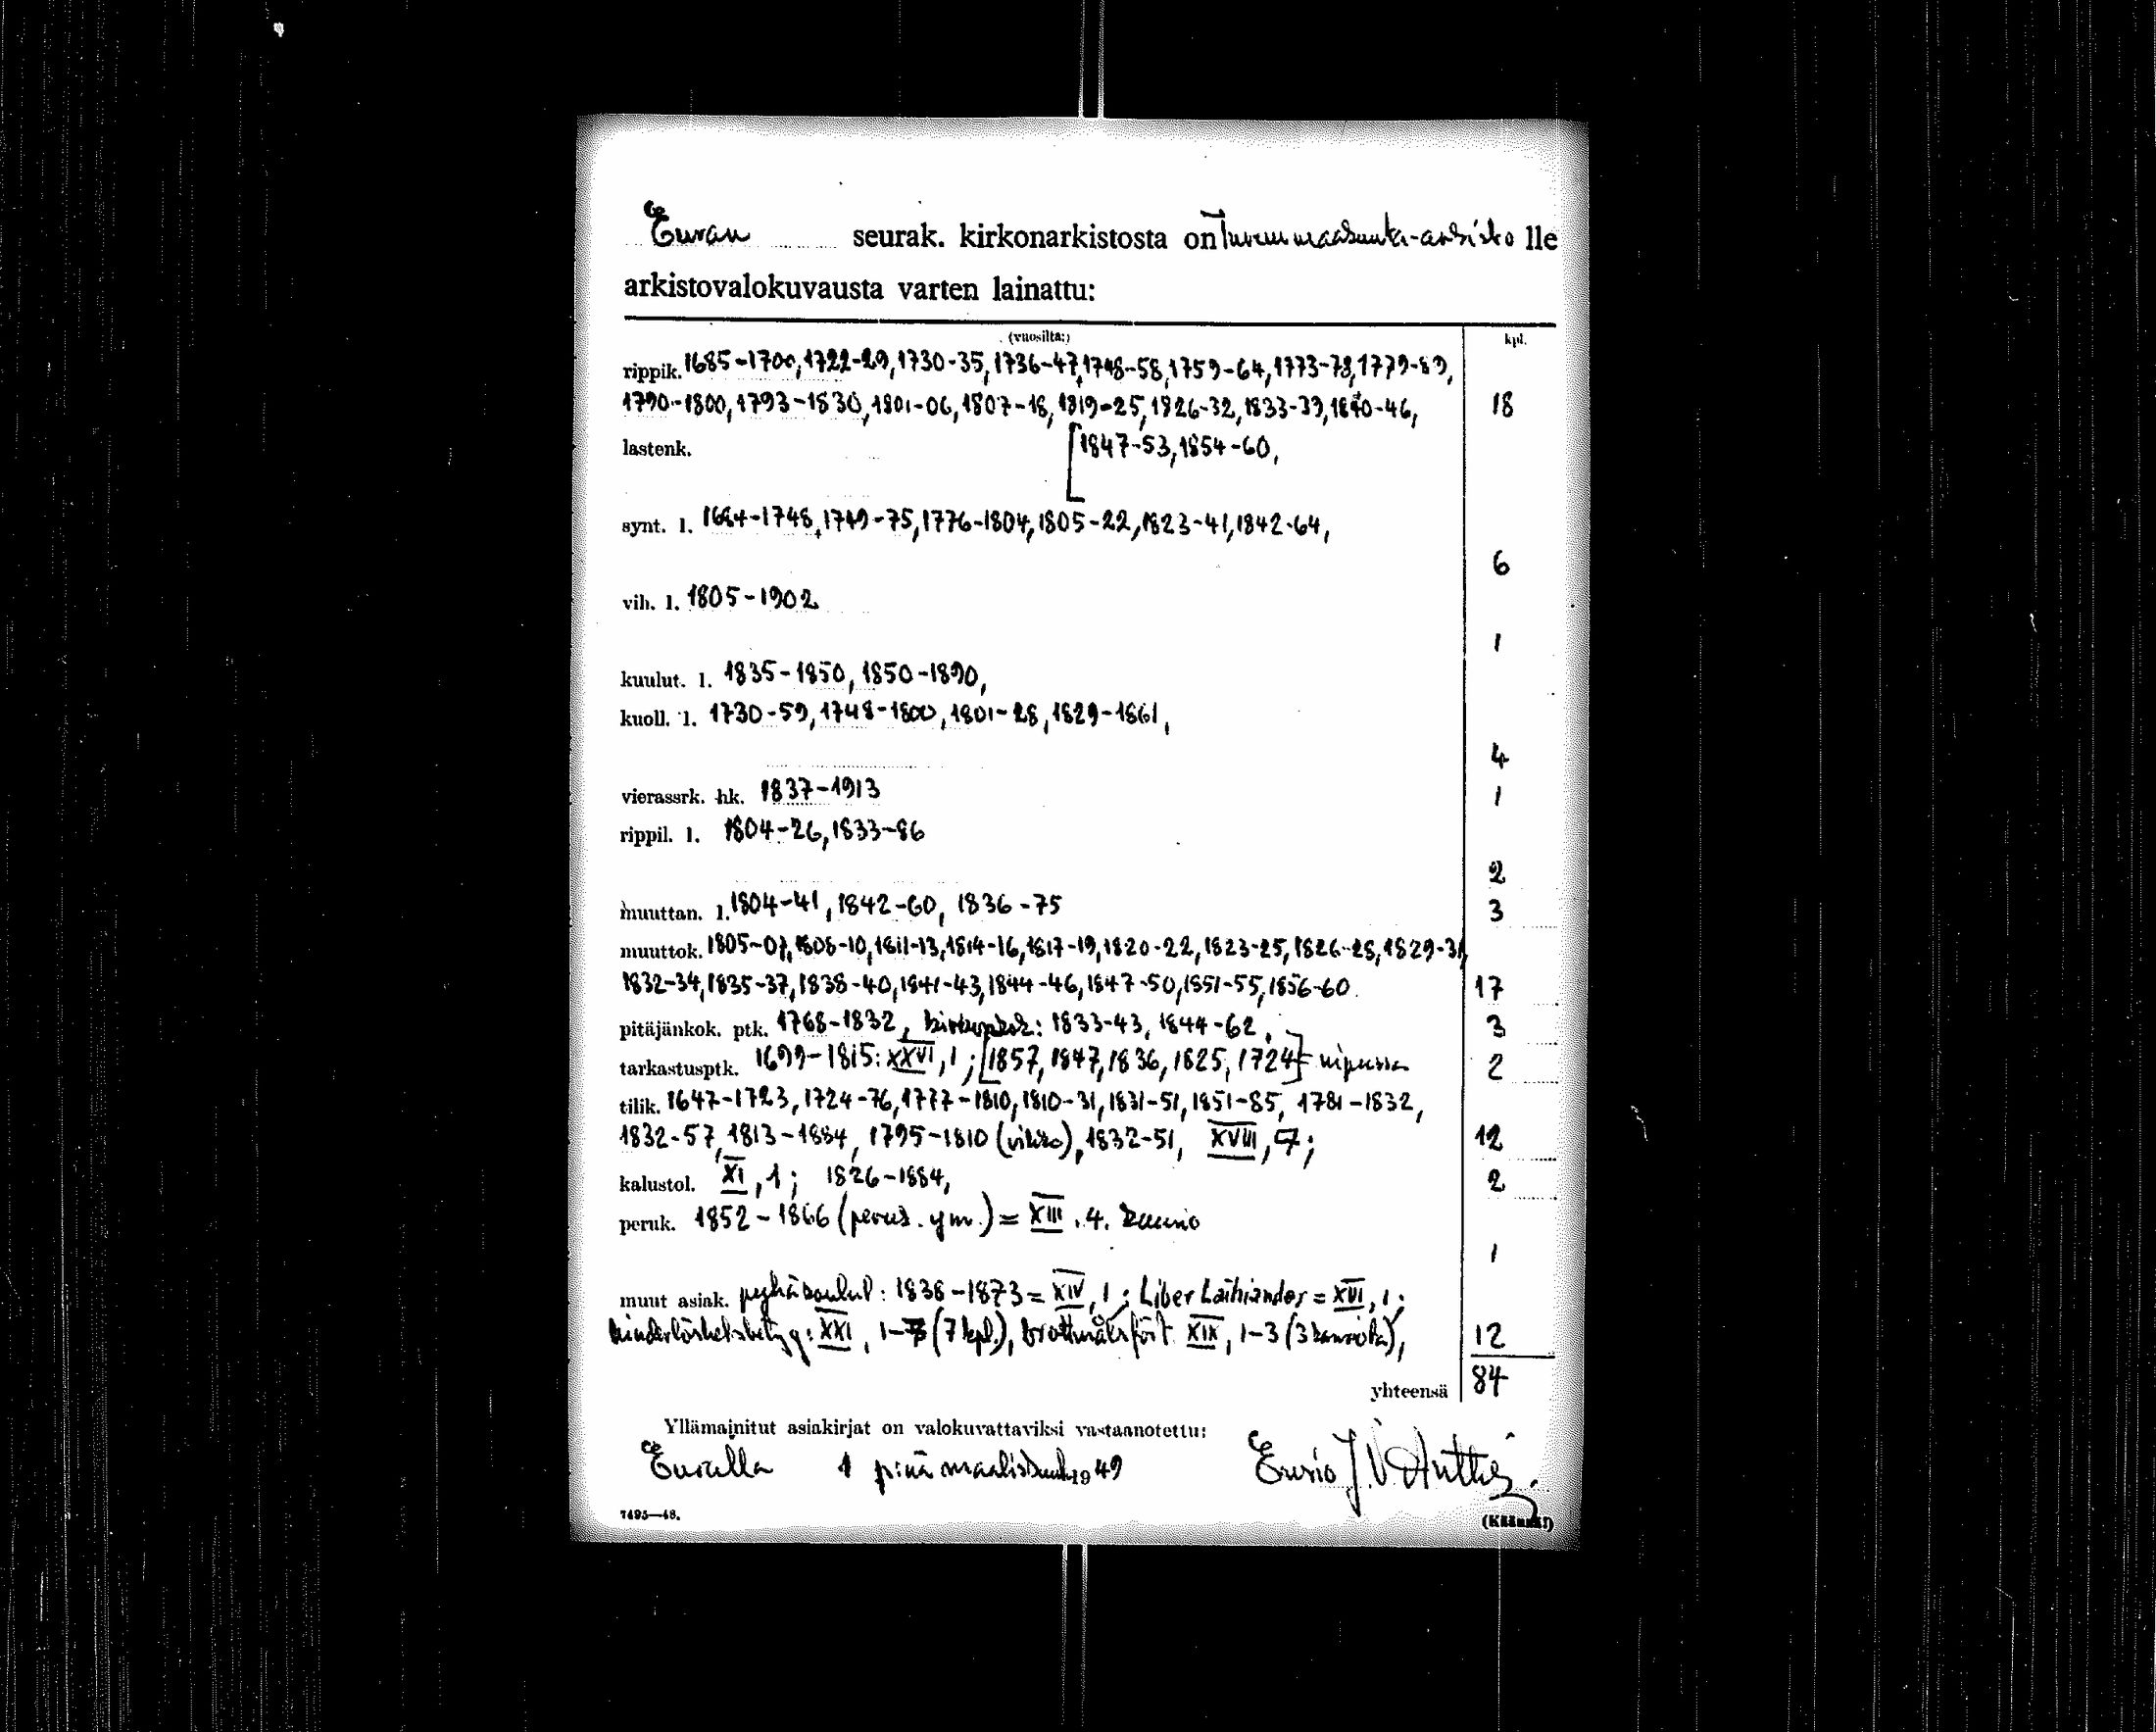 Euran seurak. kirkonarkistosta on Turun maakunta-arkisto lle
arkistovalokuvausta varten lainattu:
(vuosilta:) kpl.
rippik. 1685-1700, 1722-29, 1730-35, 1736-47, 1748-58, 1759-64, 1773-78, 1779-89,
1790-1800, 1793-1830, 1801-06, 1807-18, 1819-25, 1826-32, 1833-39, 1840-46, 18
lastenk. [1847-53, 1854-60,
synt. l. 1684-1748, 1749-75, 1776-1804, 1805-22, 1823-41, 1842-64,
6
vih. l. 1805-1902
1
kuulut. l. 1835-1850, 1850-1890,
kuoll. l. 1730-59, 1748-1800, 1801-28, 1829-1861,
4
vierassrk. hk. 1837-1913 1
rippil. l. 1804-26, 1833-86
2
muuttan. l. 1804-41, 1842-60, 1836-75 3
muuttok. 1805-07, 1808-10, 1811-13, 1814-16, 1817-19, 1820-22, 1823-25, 1826-28, 1829-31,
1832-34, 1835-37, 1838-40, 1841-43, 1844-46, 1847-50, 1851-55, 1856-60. 17
pitäjänkok. ptk. 1768-1832, 1833-43, 1844-62, 3
tarkastusptk. 1699-1815: XXVI, 1; [1857, 1847, 1836, 1825, 1724] nipussa 2
tilik. 1647-1723, 1724-76, 1777-1810, 1810-31, 1831-51, 1851-85, 1781-1832,
1832-57, 1813-1884, 1795-1810 (vihko), 1832-51, XVIII, 7; 12
kalustol. XI, 1; 1826-1884, 2
peruk. 1852-1866 (peruk. ym.) = XIII. 4. kansio
1
muut asiak. pyhäkoulul: 1838-1873 = XIV, 1; Liber Laihiandos = XVI, 1;
hinderlöshetsbetyg: XXI, 1-7 (7 kpl.), brottmålsfört. XIX, 1-3 (3 kansiota), 12
yhteensä 84
Yllämainitut asiakirjat on valokuvattaviksi vastaanotettu:
Euralla 1 p:nä maalisk 1949 J.V.
7495—48. (Käännä!)